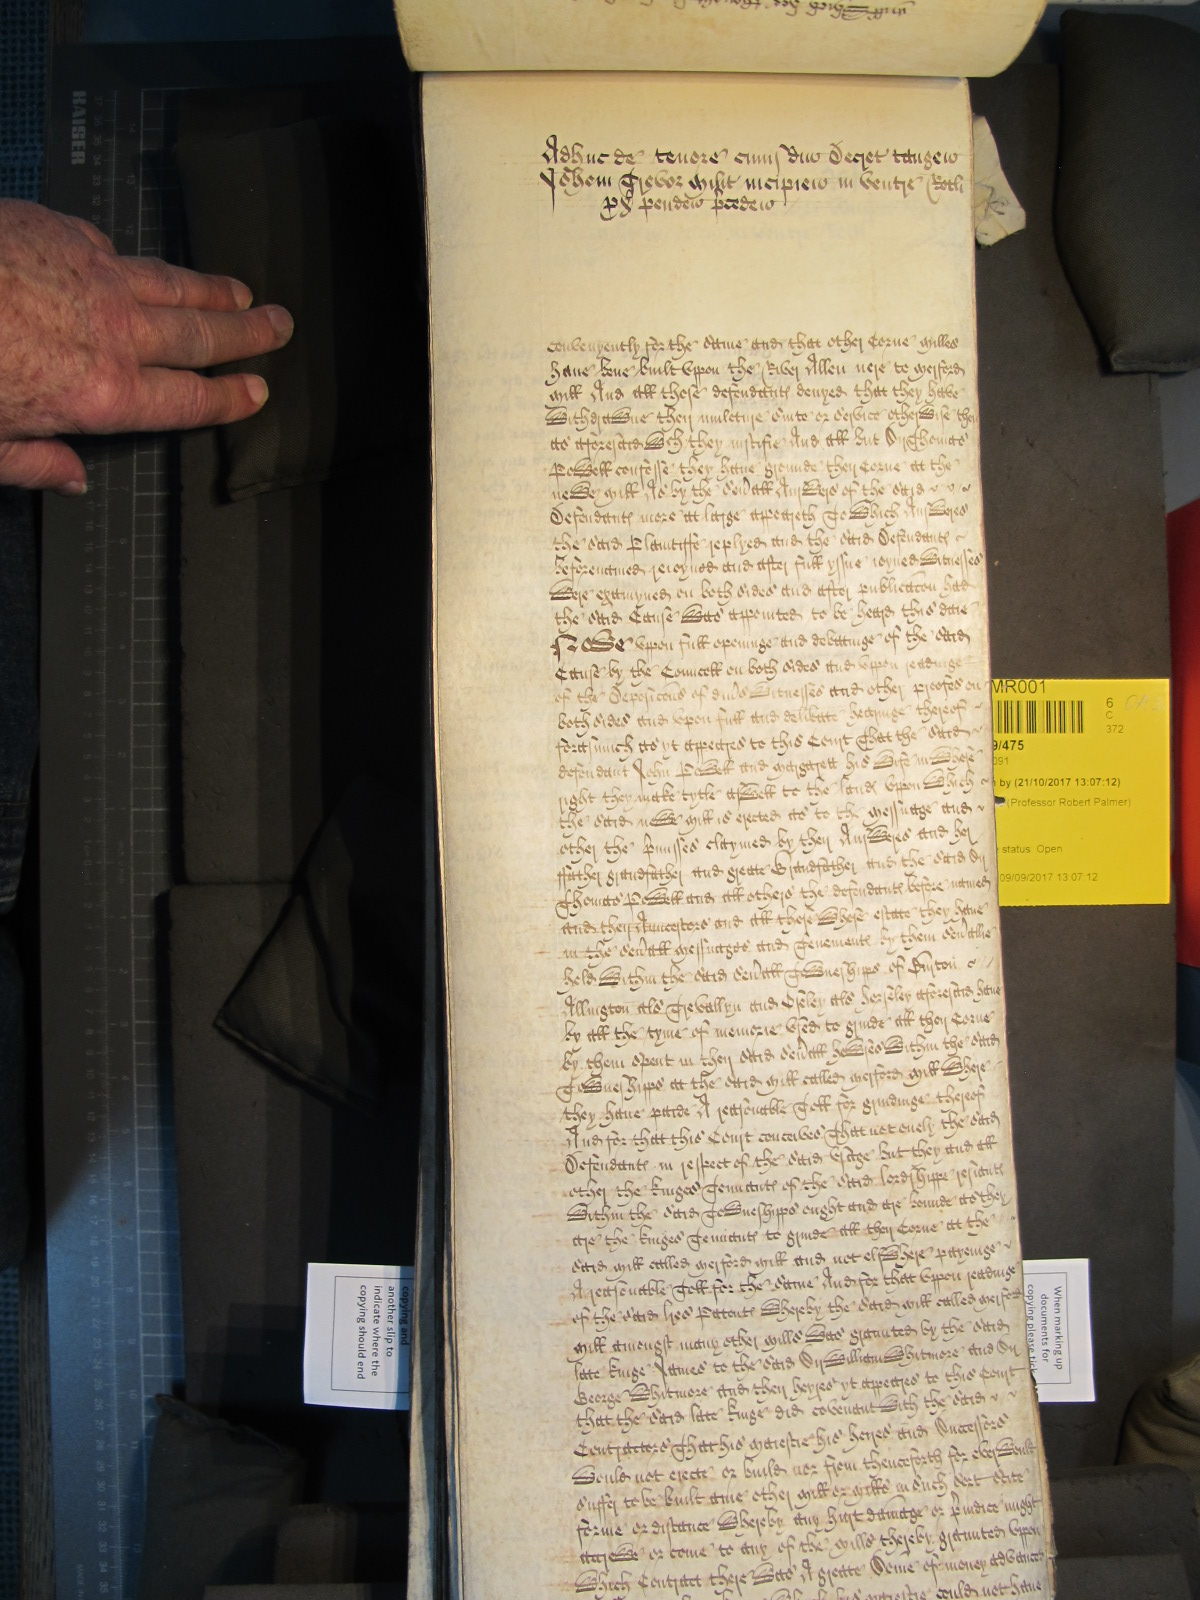 Adhuc de tenore cuiusd duo Decret tangen
Johem Trevor milit incipien in ventre Rotli
px penden preceden
conveniently for the same and that other Corne milles
have bene built uppon the River Allen nere to Merford
mill And all those defendants denyed that they have
withdrawne their multure suite or service otherwise then
as aforesaid wch they iustifie And all but Sr Thomas
Powell confesse they have grounde their Corne at the
newe mill As by the sevall Answeres of the said
Defendants more at large appeareth To which Answeres
the said Plaintiffe replyed and the said Defendants
beforenamed reioyned and after full yssue ioyned witnesses
were examyned on both sides and after publicacon had
the said Cause was appointed to be heard this daie
Nowe uppon full openinge and debatinge of the said
Cause by the Councell on both sides and uppon readinge
of the Deposicons of divs witnesses and other proofes on
both sides and upon full and delibate hearinge thereof
forasmuch as yt appeares to this Court That the said
defendant John Powell and Margarett his wife in whose
right they make tytle aswell to the land uppon which
the said newe mill is erected as to the messuage and
other the pmisses claymed by their Answeres and her
ffather grandfather and greate Grandfather and the said Sr
Thomas Powell and all others the defendants before named
and their Auncestors and all those whose estate they have
in the sevall messuages and Tenements by them sevallie
held within the said sevall Towneshipps of Burton
Allington als Trevallyn and Creley als horseley aforesaid have
by all the tyme of memorie used to grinde all their Corne
by them spent in their said sevall howses within the said
Towneshipps at the said mill called Merford mill where
they have paide A reasonable Toll for grindinge thereof
And for that this Court conceives That not onely the said
Defendants in respect of the said usage but they and all
other the kinges Tennants of the said lordshippe resiants
within the said Towneshipps ought and are bounde as they
are the kinges Tennants to grinde all their Corne at the
said mill called Merford mill and not elswhere payeinge
A reasonable Toll for the same And for that uppon readinge
of the said lres Patents whereby the said mill called Merford
mill amongst many other mills was graunted by the said
late kinge James to the said Sr William Whitmore and Sr
George Whitmore and their heyres yt appeares to this Court
that the said late kinge did covenant with the said
Contractors That his Maiestie his heyres and Successors
would not erecte or build nor from thenceforth for ever would
suffer to be built anie other mill or mills in such sort state
forme or distance whereby any hurt damage or piudice might
arrise or come to any of the mills thereby graunted uppon
which Contract there was A greate Some of money advanced
his Maiestie could not have
HAISER
MR001
6
C
372
9/475
091
by (21/10/2017 13:07:12)
(Professor Robert Palmer)
status: Open
09/09/2017 13:07:12
copying and
another slip to
indicate where the
copying should end
When marking up
documents for
copying please